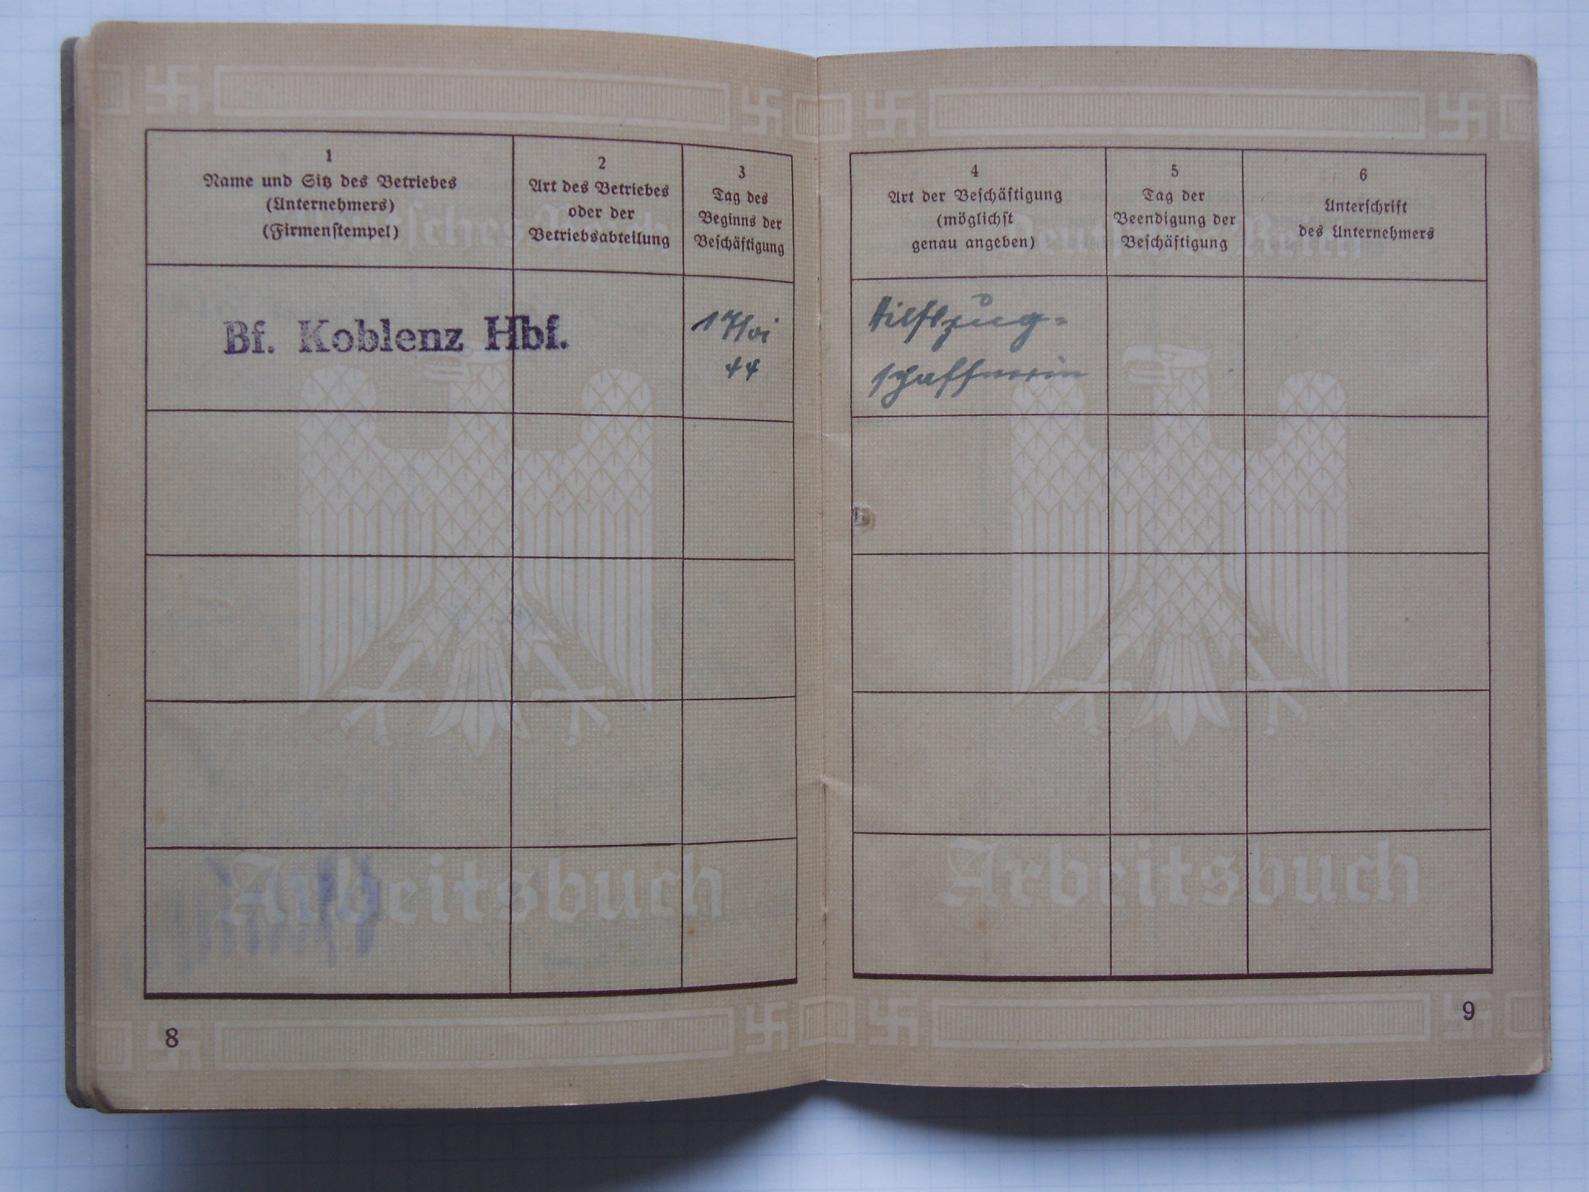 1
Name und Sitz des Betriebes
(Unternehmers)
(Firmenstempel)
2
Art des Betriebes
oder der
Betriebsabteilung
3
Tag des
Beginns der
Beschäftigung
Bf. Koblenz Hbf.
44
Arbeitsbuch
8
4
Art der Beschäftigung
(möglichst
genau angeben)
5
Tag der
Beendigung der
Beschäftigung
6
Unterschrift
des Unternehmers
Deutsches Reich
Hilfszug-
schaffnerin
Arbeitsbuch
9